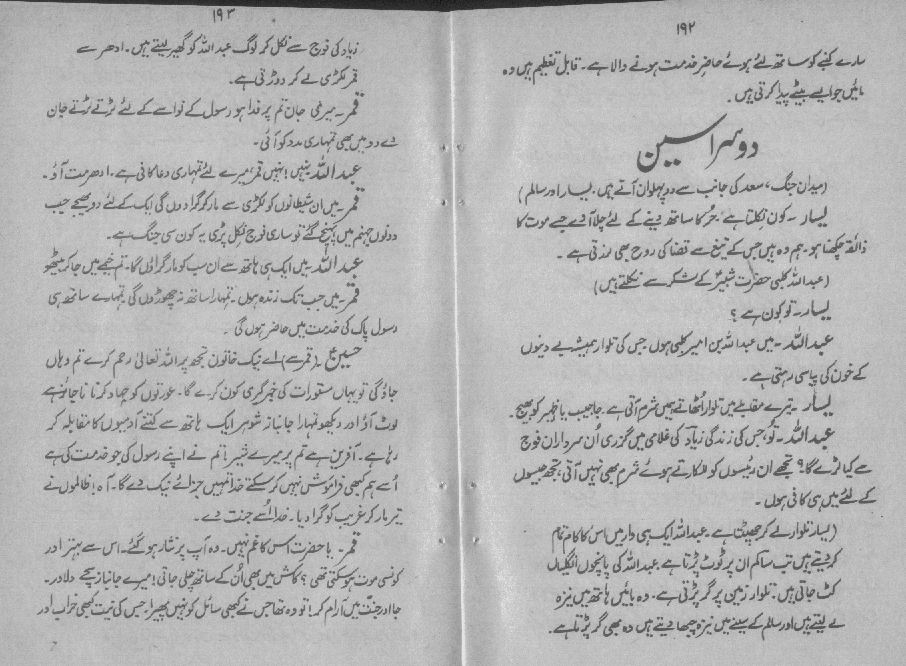 ۱۹۲
سارے کنبے کو ساتھ لئے ہوئے حاضر خدمت ہونے والا ہے۔ قابل تعظیم ہیں وہ
مائیں جو ایسے بیٹے پیدا کرتی ہیں۔
دوسرا سین
(میدان جنگ، سعد کی جانب سے دو پہلوان آتے ہیں۔ یسار اور سالم)
یسار۔ کون نکلتا ہے حُر کا ساتھ دینے کے لئے چلا آئے جسے موت کا
ذائقہ چکھنا ہو۔ ہم وہ ہیں جس کے تیغ سے قضا کی روح بھی لرزتی ہے۔
(عبداللہ کلبی حضرت شبیرؑ کے لشکر سے نکلتے ہیں)
یسار۔ تو کون ہے؟
عبداللہ۔ میں عبداللہ بن امیر کلبی ہوں جس کی تلوار ہمیشہ بے دینوں
کے خون کی پیاسی رہتی ہے۔
یسار۔ تیرے مقابلے میں تلوار اٹھاتے ہمیں شرم آتی ہے۔ جا حبیب یا ظہیر کو بھیج۔
عبداللہ۔ تُو، جس کی زندگی زیاد کی غلامی میں گزری اُن سرداران فوج
سے کیا لڑے گا؟ تجھے ان رئیسوں کو للکارتے ہوئے شرم بھی نہیں آتی، تجھ جیسوں
کے لئے میں ہی کافی ہوں۔
(یسار تلوار لے کر جھپٹتا ہے۔ عبداللہ ایک ہی وار میں اس کا کام تمام
کر دیتے ہیں تب سالم ان پر ٹوٹ پڑتا ہے عبداللہ کی پانچوں انگلیاں
کٹ جاتی ہیں۔ تلوار زمین پر گر پڑتی ہے۔ وہ بائیں ہاتھ میں نیزہ
لے لیتے ہیں اور سالم کے سینے میں نیزہ چبھا دیتے ہیں وہ بھی گر پڑتا ہے۔
۱۹۳
زیاد کی فوج سے نکل کر لوگ عبداللہ کو گھیر لیتے ہیں۔ ادھر سے
قمر لکڑی لے کر دوڑتی ہے۔
قمر۔ میری جان تم پر فدا ہو رسول کے نواسے کے لئے لڑتے لڑتے جان
دے دو میں بھی تمہاری مدد کو آئی۔
عبداللہ۔ نہیں! نہیں قمر، میرے لئے تمہاری دعا کافی ہے۔ ادھر مت آؤ۔
قمر۔ میں ان شیطانوں کو لکڑی سے مار کر گرا دوں گی ایک کے لئے دو بھیجے جب
دونوں جہنم میں پہنچ گئے تو ساری فوج نکل پڑی یہ کون سی جنگ ہے۔
عبداللہ۔ میں ایک ہی ہاتھ سے ان سب کو مار گراؤں گا۔ تم خیمے میں جا کر بیٹھو
قمر۔ میں جب تک زندہ ہوں۔ تمہارا ساتھ نہ چھوڑوں گی تمہارے ساتھ ہی
رسول پاک کی خدمت میں حاضر ہوں گی۔
حسین۔ (قمر سے) اے نیک خاتون تجھ پر اللہ تعالیٰ رحم کرے تم وہاں
جاؤ گی تو یہاں مستورات کی خبر گیری کون کرے گا۔ عورتوں کو جہاد کرنا ناجائز ہے
لوٹ آؤ اور دیکھو تمہارا جانباز شوہر ایک ہاتھ سے کتنے آدمیوں کا مقابلہ کر
رہا ہے۔ آفرین ہے تم پر میرے شیر! تم نے اپنے رسول کی جو خدمت کی ہے
اُسے ہم کبھی فراموش نہیں کر سکتے خدا تمہیں جزائے نیک دے گا۔ آہ! ظالموں نے
تیر مار کر غریب کو گرا دیا۔ خدا اُسے جنت دے۔
قمر۔ یا حضرت اس کا غم نہیں۔ وہ آپ پر نثار ہو گئے۔ اس سے بہتر اور
کونسی موت ہو سکتی تھی؟ کاش میں بھی اُن کے ساتھ چلی جاتی! میرے جانباز سچے دلاور۔
جا اور جنت میں آرام کر! تو وہ تھا جس نے کبھی سائل کو نہیں پھیرا۔ جس کی نیت کبھی خراب اور